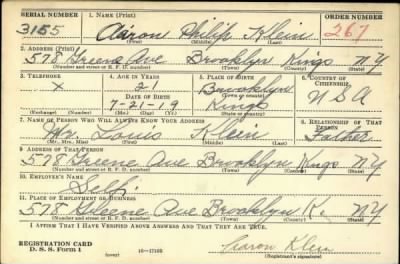 SERIAL NUMBER 1. NAME (Print) ORDER NUMBER
3155 Aaron Philip Klein 267
(First) (Middle) (Last)
2. ADDRESS (Print)
578 Greene Ave Brooklyn Kings NY
(Number and street or R. F. D. number) (Town) (County) (State)
3. TELEPHONE 4. AGE IN YEARS 5. PLACE OF BIRTH 6. COUNTRY OF CITIZENSHIP
X 21 Brooklyn
DATE OF BIRTH (Town or county)
7-21-19 Kings USA
(Mo.) (Day) (Yr.) (State or country)
7. NAME OF PERSON WHO WILL ALWAYS KNOW YOUR ADDRESS 8. RELATIONSHIP OF THAT PERSON
Mr. Louis Klein Father
(Mr., Mrs., Miss) (First) (Middle) (Last)
9. ADDRESS OF THAT PERSON
578 Greene Ave Brooklyn Kings NY
(Number and street or R. F. D. number) (Town) (County) (State)
10. EMPLOYER'S NAME
Self
11. PLACE OF EMPLOYMENT OR BUSINESS
578 Greene Ave Brooklyn K. NY
(Number and street or R. F. D. number) (Town) (County) (State)
I AFFIRM THAT I HAVE VERIFIED ABOVE ANSWERS AND THAT THEY ARE TRUE.
REGISTRATION CARD
D. S. S. Form 1 (over) Aaron Klein
(Registrant's signature)